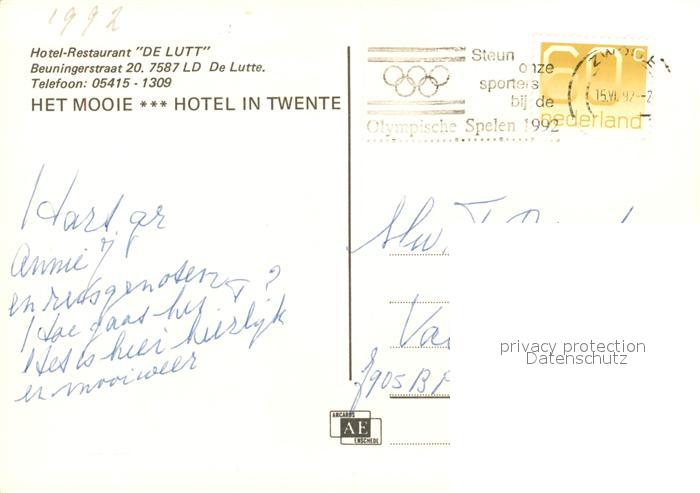 1992
Hotel-Restaurant "DE LUTT"
Beuningerstraat 20. 7587 LD De Lutte.
Telefoon: 05415 - 1309
HET MOOIE *** HOTEL IN TWENTE
Steun
onze
sporters
bij de
Olympische Spelen 1992
60 c
nederland
ZWOLLE
15.VI.92
Hart. gr
Annie J.
en reisgenoten
Hoe gaat het ?
Het is hier heerlijk
en mooi weer
privacy protection
Datenschutz
ARCARDS
AE
ENSCHEDE